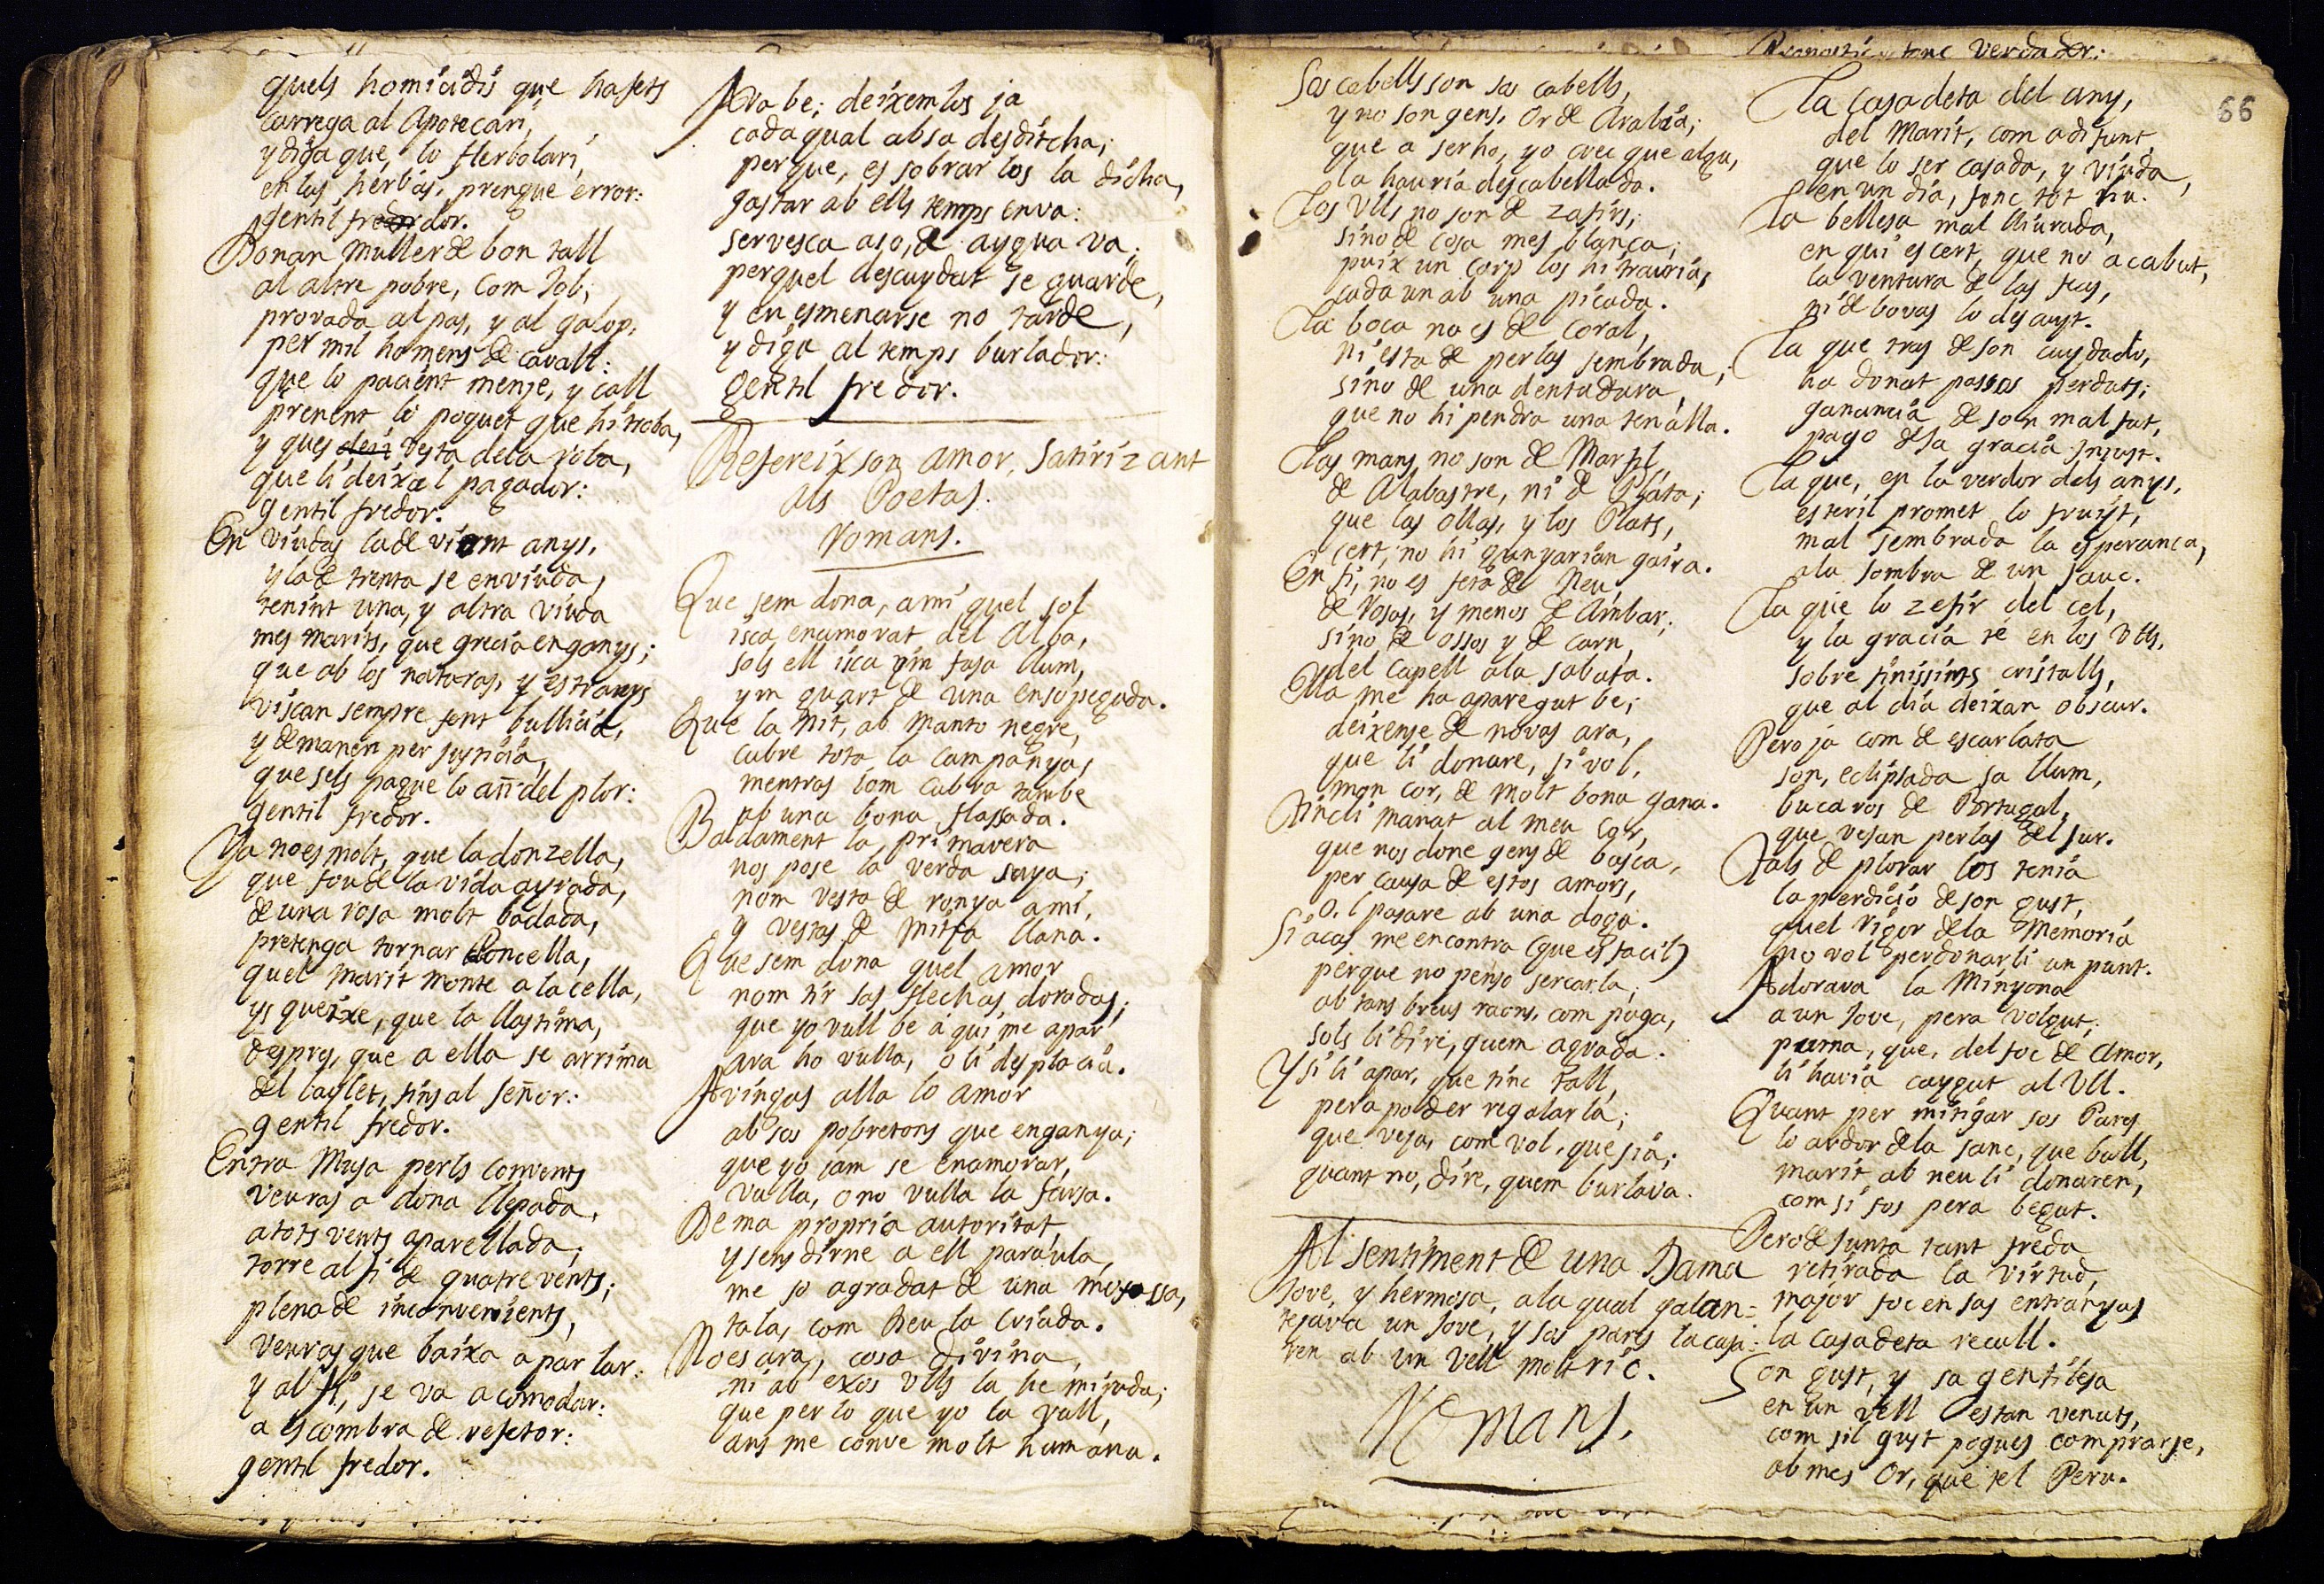 quels homicidis que hafets
carrega al Apotecari,
y diga que, lo Herbolari,
en las herbas, prengue error:
gentil fredor.
Donan Muller de bon tall
al altre pobre, Com Job,
provada al pas, y al galop,
per mil homens de cavall:
que lo pacient menje, y call
prenent lo poguet que hi troba,
y ques vesta dela roba,
que li deixa l pagador:
gentil fredor.
En viudas la de vint anys,
y la de trenta se enviuda,
tenint una, y altra viuda
mes marits, que grecia enganys;
que ab los naturas, y estranys
viscan sempre fent bullicia,
y demanen per justicia,
que sels pague lo añ del plor:
gentil fredor.
Ya no es molt, que la donzella,
que fou de la vida ayrada,
de una rosa molt badada,
pretenga tornar Poncella,
quel Marit monte a la cella,
ys queixe, que la llastima,
despres, que a ella se arrima
del baylet, fins al señor:
gentil fredor.
Entra Musa perls Convents
veuras a dona llepada,
a tots vents aparellada,
torre al fi de quatre vents;
plena de inconvenients,
veuras que baixa a par lar:
y al fi, se va acomodar:
a escombra de refetor:
gentil fredor.
Ara be; deixemlos ja
cada qual ab sa desditcha;
perque, es sobrar los la dicha,
gastar ab ells temps enva:
servesca aso, de aygua va:
perquel descuydat se guarde,
y en esmenarse no tarde,
y diga al temps burlador:
gentil fredor.
Refereix son amor, Satirizant
als Poetas.
Romans.
Que sem dona, ami quel sol
isca enamorat del Alba,
sols ell isca yim fasa llum,
ym guart de una ensopegada.
Que la Nit, ab Manto negre,
cubre tota la Campanya,
mentras lom Cubra tambe
ab una bona flassada.
Baldament la primavera
nos pose la verda saya;
nom vesta de ronya ami,
y vestas de mitja llana.
Que sem dona quel amor
nom tir sas flechas doradas;
que yo vull be a qui me apar,
ara ho vulla, o li desplacia.
Avingas alla lo amor
ab sos pobretons que enganya;
que yo jam se enamorar,
vulla, o no vulla la farsa.
De ma propria autoritat,
y sens dirne a ell paraula,
me so agradat de una mosassa,
tala, com Deu la Criada.
No es ara, cosa divina,
ni ab exos Ulls la he mirada;
que per lo que yo la vull,
ans me conve molt humana.
Sos cabells son sos cabells,
y no son gens, Or de Arabia;
que a serho, yo crec que algu,
la hauria descabellada.
Los Ulls no son de zafirs;
sino de cosa mes blanca;
puix un Corp los hi trauria,
cada un ab una picada.
La boca no es de Coral,
ni esta de perlas sembrada;
sino de una dentadura,
que no hi pendra una tenalla.
Las mans no son de Marfil,
de Alabastre, ni de Plata;
que las Ollas, y los Plats,
cert, no hi gunyarian gaira.
En fi, no es feta de Neu,
de Rosas, y menos de Ambar;
sino de ossos y de carn,
del Capell ala sabata.
Ella me ha aparegut be;
deixense de novas ara,
que li donare, si vol,
mon cor, de molt bona gana.
Tincli manat al meu Cor,
que nos done gens de basca,
per causa de estos amors,
O. l pasare ab una daga.
Si acas me encontra (que es facil)
perque no penso sercarla;
ab tans breus raons, com puga,
sols li dire, quem agrada.
Y si li apar, que tinc tall,
pera polder regalarla;
que veja, com vol, que sia;
quant no, dire, quem burlava.
Al sentiment de una Dama
Jove, y hermosa, ala qual galan=
tejava un Jove, y sos pares la casa=
ren ab un Vell molt ric.
Romans.
verdader:
66
La Casadeta del any,
del Marit, com a difunt,
que lo ser casada, y viuda,
en un dia, fonc tot hu.
La bellesa mal lliurada,
en qui es cert, que no acabut,
la ventura de las feas,
ni de bovas lo desayt.
La que tras de son cuydado,
ha donat passos perdats;
ganancia de son mal fat,
pago de sa gracia injust.
La que, en la verdor dels anys,
esteril promet lo fruyt,
mal sembrada la esperanca,
ala sombra de un sauc.
La que lo zefir del cel,
y la gracia te en los Ulls,
sobre finissims cristalls,
que al dia deixan obscur.
Pero ja com de escarlata
son, eclipsada sa llum,
bucaros de Portugal,
que vesan perlas del sur.
Tals de plorar los tenia
la perdicio de son gust,
quel rigor dela Memoria
no vol perdonarli un punt.
Adorava la Minyona
a un Jove, pera volgut;
puma, que, del foc de Amor,
li havia caygut al Ull.
Quant per mitigar sos Pares
lo ardor dela sanc, que bull,
marit, ab neu li donaren,
com si fos pera begut.
Pero de sunta tant freda
retirada la virtud,
major foc en sas entranyas
la casadeta recull.
Son gust, y sa gentilesa
en un vell estan venuts,
com sil gust pogues comprarse,
ab mes Or, que tel Peru.